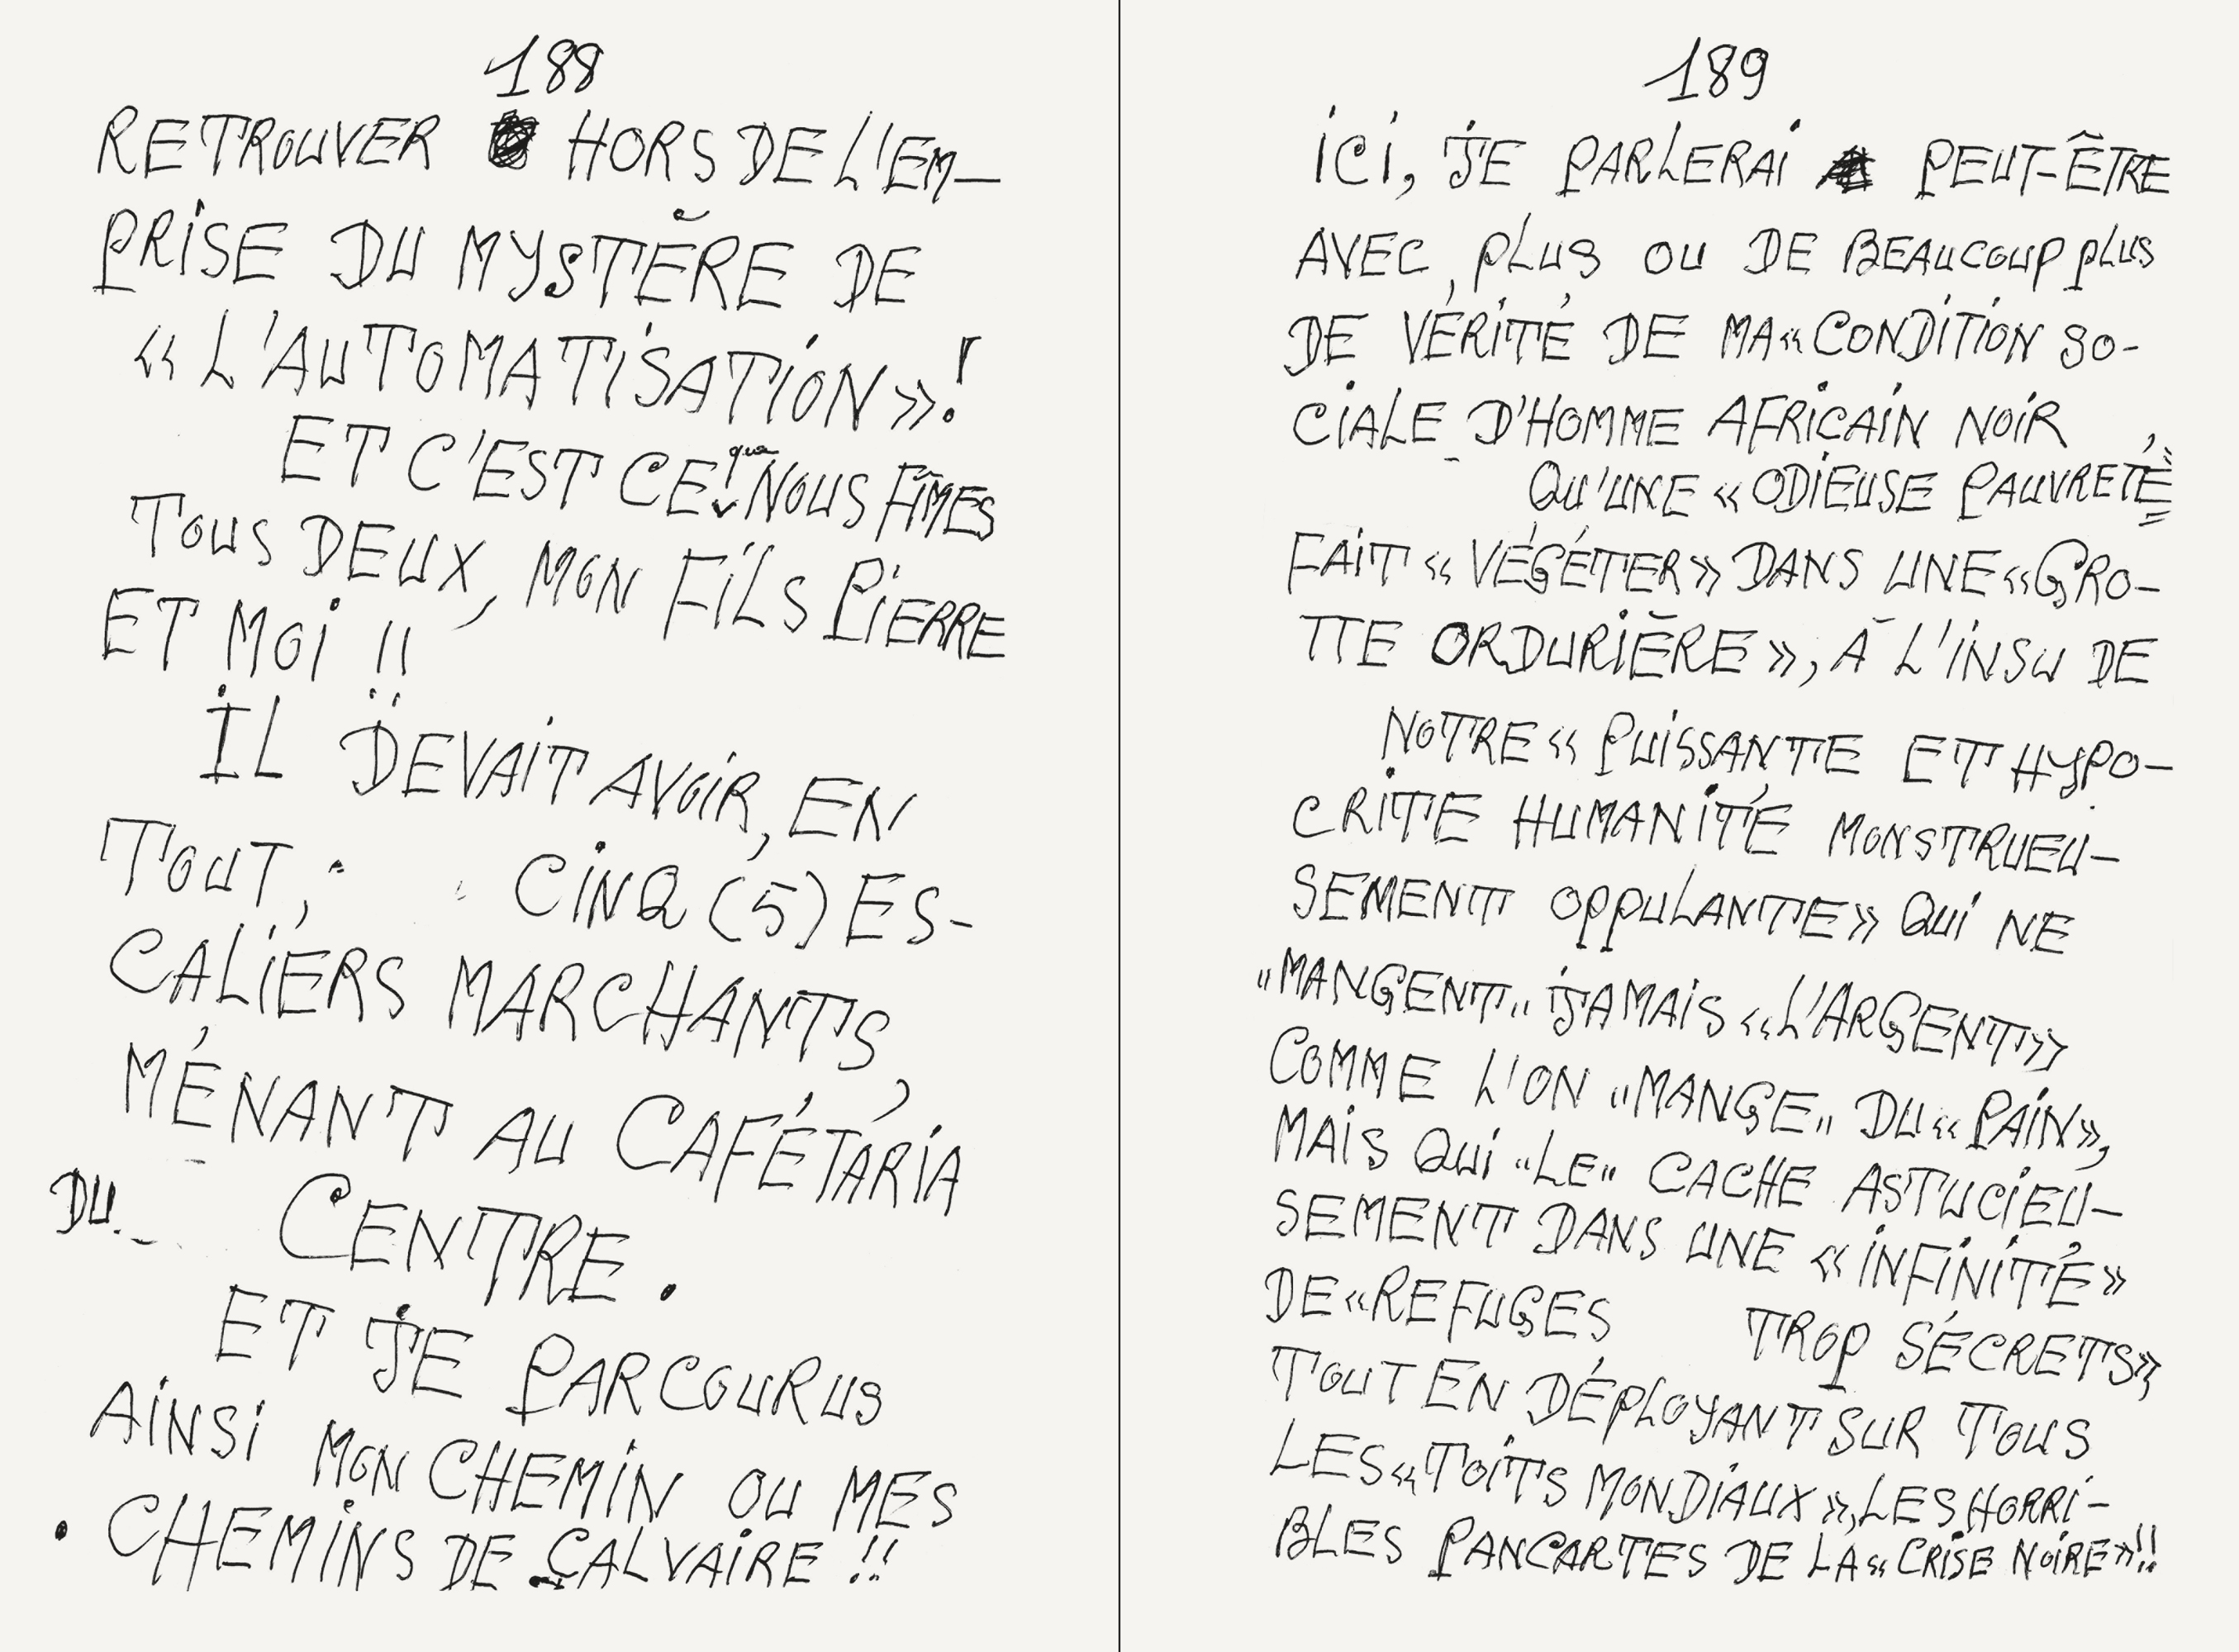 188
RETROUVER HORS DE L'EM-
PRISE DU MYSTÈRE DE
« L'AUTOMATISATION »!
ET C'EST CE que NOUS FÎMES
TOUS DEUX, MON FILS PIERRE
ET MOI !!
IL DEVAIT AVOIR, EN
TOUT, CINQ (5) ES-
CALIERS MARCHANTS,
MÉNANT AU CAFÉTARIA
DU CENTRE.
ET JE PARCOURUS
AINSI MON CHEMIN OU MES
CHEMINS DE CALVAIRE !!
189
ICI, JE PARLERAI PEUT-ÊTRE
AVEC, PLUS OU DE BEAUCOUP PLUS
DE VÉRITÉ DE MA « CONDITION SO-
CIALE D'HOMME AFRICAIN NOIR
QU'UNE « ODIEUSE PAUVRETÉ »
FAIT « VÉGÉTER » DANS UNE « GRO-
TTE ORDURIÈRE », À L'INSU DE
NOTRE « PUISSANTE ET HYPO-
CRITE HUMANITÉ MONSTRUEU-
SEMENT OPPULANTE » QUI NE
"MANGENT" JAMAIS « L'ARGENT »
COMME L'ON "MANGE" DU « PAIN »,
MAIS QUI "LE" CACHE ASTUCIEU-
SEMENT DANS UNE « INFINITÉ »
DE « REFUGES TROP SÉCRETS »,
TOUT EN DÉPLOYANT SUR TOUS
LES « TOITS MONDIAUX », LES HORRI-
BLES PANCARTES DE LA « CRISE NOIRE »!!